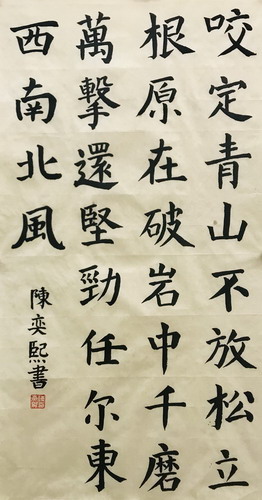 咬定青山不放松立
根原在破岩中千磨
萬擊還堅勁任尔東
西南北風
陳奕熙書